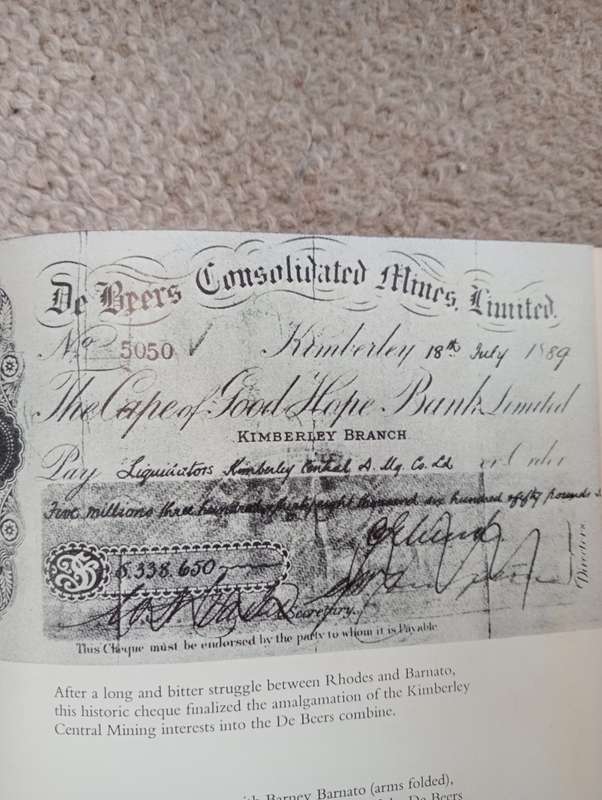 De Beers Consolidated Mines, Limited.
No. 5050 Kimberley 18th July 1889
The Cape of Good Hope Bank Limited
KIMBERLEY BRANCH
Pay Liquidators Kimberley Central D. Mg Co. Ld or Order
Five millions three hundred & thirty eight thousand six hundred & fifty pounds
£ 5.338.650
Directors
Secretary.
This Cheque must be endorsed by the party to whom it is Payable
After a long and bitter struggle between Rhodes and Barnato,
this historic cheque finalized the amalgamation of the Kimberley
Central Mining interests into the De Beers combine.
Barney Barnato (arms folded),
De Beers